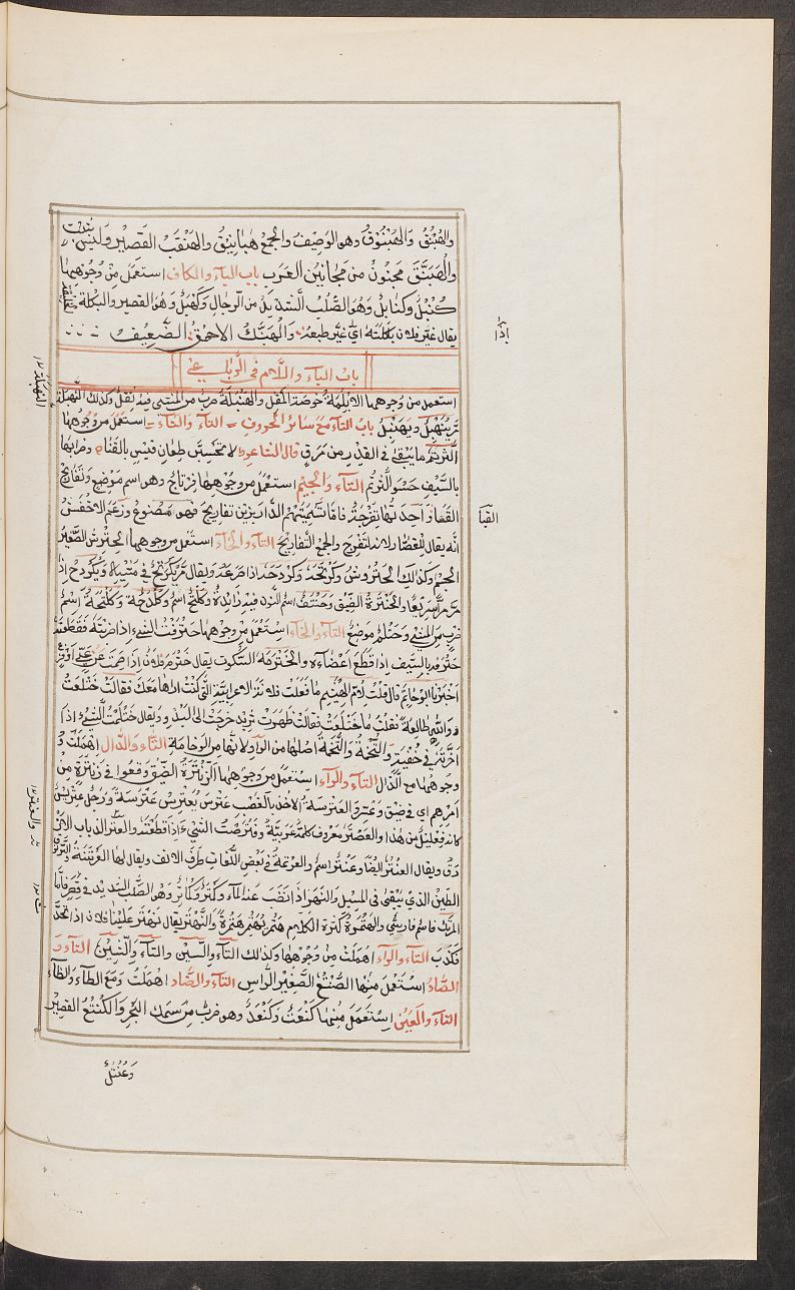 والهُبْنُقُ والهُبْنُوقُ وهو الوَصِيفُ والجمعُ هَبانِيقُ والهَنْقَبُ القَصيرُ وليس بثبت
والهَبَنَّقُ مَجنُونٌ من مَجانينِ العَرَبِ باب الباء والكاف استعمل من وُجُوهِهما
كُنْبُلٌ وكُنابِلٌ وهُوَ الصُّلْبُ الشديدُ من الرِّجالِ وكَهْبَلٌ وهُوَ القصير والبَكْلَةُ
يقال غيّر فلان بكلته اي غيّر طبعه والهَبَنَّكُ الاحمق الضَّعِيفُ
اذا
بابُ الباءِ واللّامِ في الرباعي
استعمل من وجوههما الابلمة خوصة المقل والهَنْبَلَةُ ضرب من المشى فيه ثقل وكذلك النَّهْبَلَة
النهبلة ١٢
مرّ يُنَهْبِلُ ويُهَنْبِلُ بابُ التاءِ مَعَ سائر الحُروفِ التاء والثاء استُعمِلَ من وُجُوهِهما
الثُّرْتُمُ ما يَبْقَى في القِدْرِ من مَرَقٍ قال الشاعر لا تَحْسَبَنَّ طِعانَ قيسٍ بالقَنا وضرابها
بالسَّيفِ حَسْوَ الثُّرْتُمِ التاء والجيم استُعمِلَ من وُجُوهِهما فِرْتاجُ وهو اسم مَوْضِعٍ وتَفاريجُ
القبا
القَباءِ واحدتها تِفْرِجَة فاما تسميتهم الدرابزين تفاريج فهو مَصْنوعٌ وزَعَمَ الاخْفَشُ
انّه يقال للقصّار لاند تفرج والجمعُ التَّفاريجُ التاء والحاء استعمل من وجوههما الحَتْرُوشُ الصَّغيرُ
الجِسْمِ وكذلك الحَتْرُوشُ وكَرْتَحَهُ وكَرْدَحَهُ اذا صَرَعَهُ ويقال مَرَّ يُكَرْتِحُ في مَشْيِهِ ويُكَرْدِحُ اذا
مَرَّ مَرًّا سَرِيعًا والحَنْتَرَةُ الضِّيقُ وحَنْتَفٌ اسم النون فيه زائدة وكلتحٌ اسم وكَلْدَحَةٌ وكَلْتَحَةٌ اسم
ضربٍ من المشي وحَتْلَمُ موضعٌ التاء والخاء استُعمِلَ من وجوههما خترفت الشيء اذا ضربته فقطعته
خَتْرَفَه بالسَّيفِ اذا قَطَعَ اعضاءه والخَتْرَمَةُ السُّكوت يقال خَتْرَمَ فلانٌ اذا صَمَتَ عن عِيٍّ او فزع
اخبرنا ابو حاتم قال قلت لام الهيثم ما فعلت فلانة الاعرابية التى كنت اراها معك فقالت خَتْلَعَتْ
والله طالعة فقلت ما خَتْلَعَتْ فقالت ظَهَرَتْ تريد خرجت الى البَدْوِ ويقال خَتْلَمْتُ الشيءَ اذا
اخذته في خُفيةٍ والتُّخَمَةُ اصلها من الواو لانها من الوخامة التاء والدال اهملت و
وجوههما مع الذال التاء والراء استعمل من وجوههما الزَّنْتَرَةُ الضّيقُ وقَعوا في زَنْتَرَةٍ من
امرهم اي في ضيق وعُسر والعَتْرَسَةُ الاخذ بالغَصْبِ عَتْرَسَ يُعَتْرِسُ عَتْرَسَةً ورَجُلٌ عِتْريسٌ
والعنتر ١٢
كانه فِعْليلٌ من هذا والصَّعْتَرُ معروف كلمة عربية وفترصت الشيء اذا قطعته والعنتر الذباب الازرق
وق ويقال العُنْتُرُ ايضا وعَنْتَر اسم والعرتمة في بعض اللغات طرف الانف ويقال لها العَرْتَبَةُ والتُّرْنُوق
الطينُ الذي يبقى في المسيل والنهر اذا انصبّ عنه الماء وكُنْتُرٌ وكُناتِرٌ وهو الصُّلب الشديد في قِصَرٍ فاما
المَرْتَكُ فاسم فارسي والهَتْمَرَةُ كثرة الكلام هَتْمَرَ يُهَتْمِرُ هَتْمَرَةً والتَّهَتُّرُ يقال نَهْتَرَ علينا فلان اذا تحدّث
فكَذَبَ التاء والزاء اهملت من وُجُوهِهما وكذلك التاء والسين والتاء والشين التاء و
الصّاد استُعمِلَ منها الصُّنْتُعُ الصَّغيرُ الرّأسِ التاء والضّاد اهملت ومَعَ الطاء والظاء
التاء والعَيْن استُعمِلَ مِنهُما كَنْعَتُ وكَنْعَدُ وهو ضربٌ من سَمَكِ البَحْرِ والكُنْتُعُ القصير
وعُنْتُلٌ